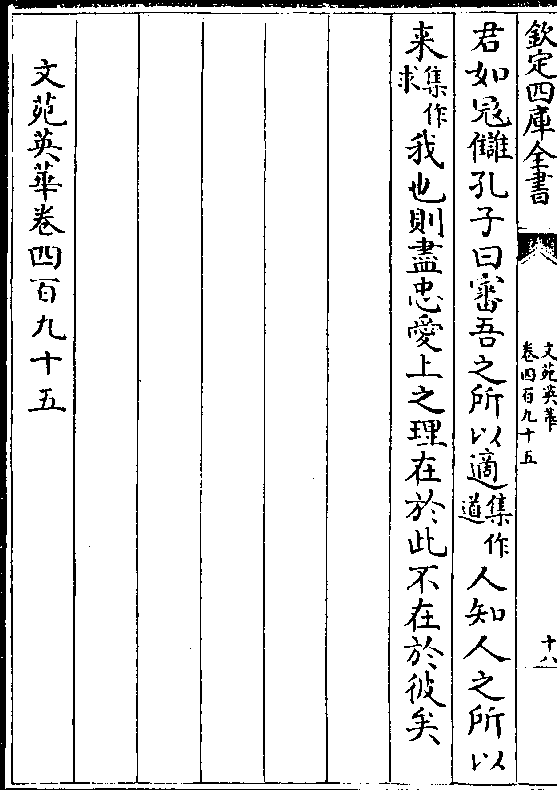 欽定四庫全書
文苑英華
卷四百九十五
十八
君如冦讎孔子曰審吾之所以適集作道人知人之所以
来集作求我也則盡忠愛上之理在於此不在於彼矣
文苑英華卷四百九十五